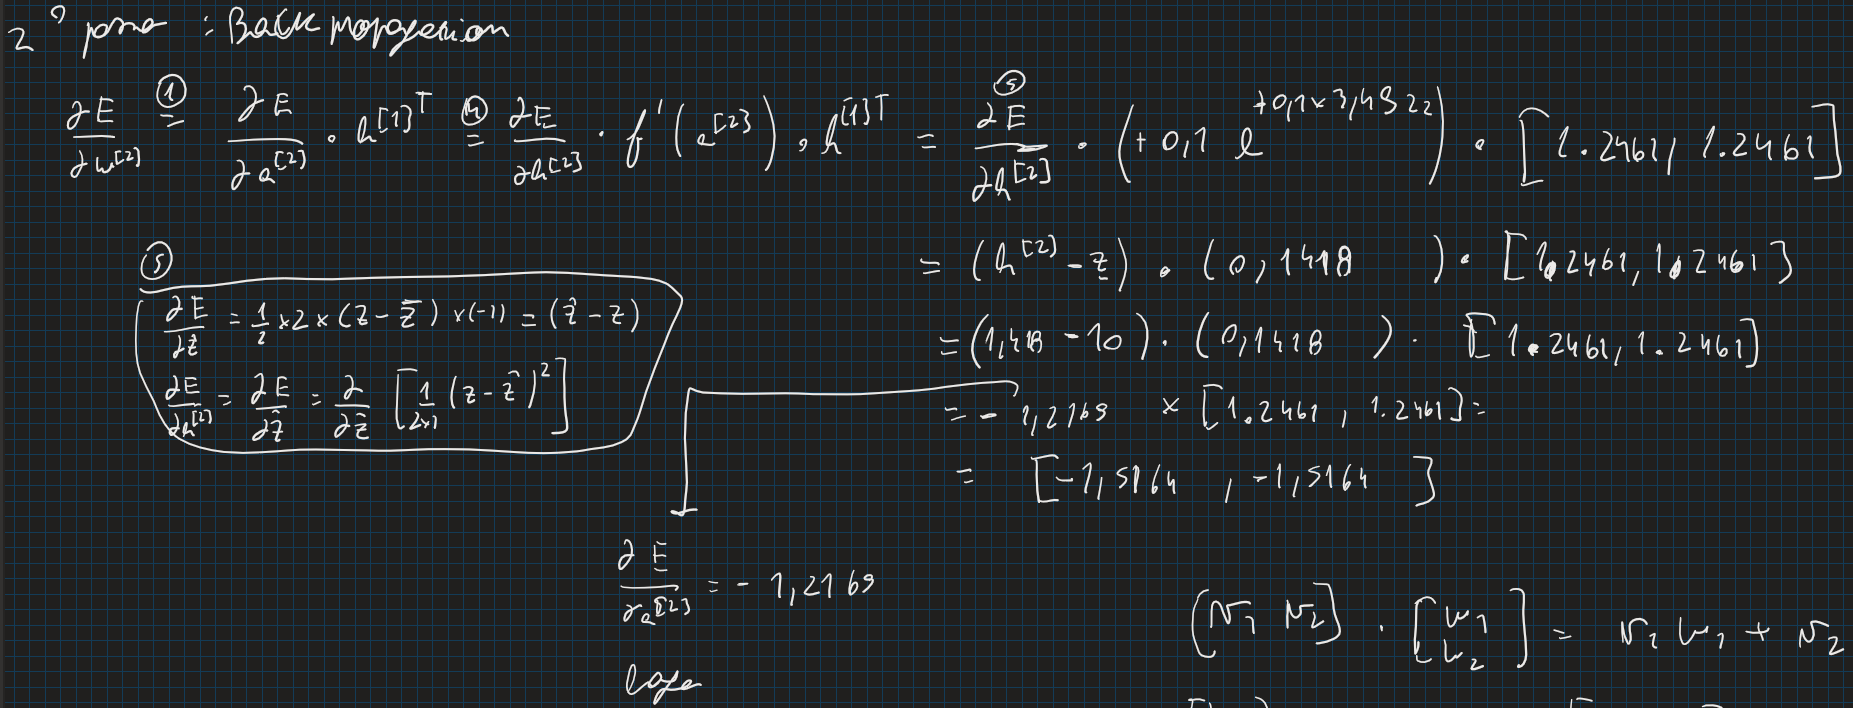 2º : Backpropagation
∂E/∂w^[2] =① ∂E/∂a^[2] · h^[1]T =④ ∂E/∂h^[2] · f'(a^[2]) · h^[1]T = ⑤ ∂E/∂h^[2] · (+0,1 e^(+0,1×3,4922)) · [1.2461, 1.2461]
= (h^[2] - z) · (0,1418) · [1.2461, 1.2461]
= (1,418 - 10) · (0,1418) · [1.2461, 1.2461]
= - 1,2169 × [1.2461, 1.2461] =
= [-1,5164, -1,5164]
⑤
∂E/∂ẑ = 1/2 × 2 × (z - ẑ) × (-1) = (ẑ - z)
∂E/∂h^[2] = ∂E/∂ẑ = ∂/∂ẑ [1/(2×1) (z - ẑ)^2]
∂E/∂a^[2] = - 1,2169
[N1 N2] · [w1 w2] = N1 w1 + N2